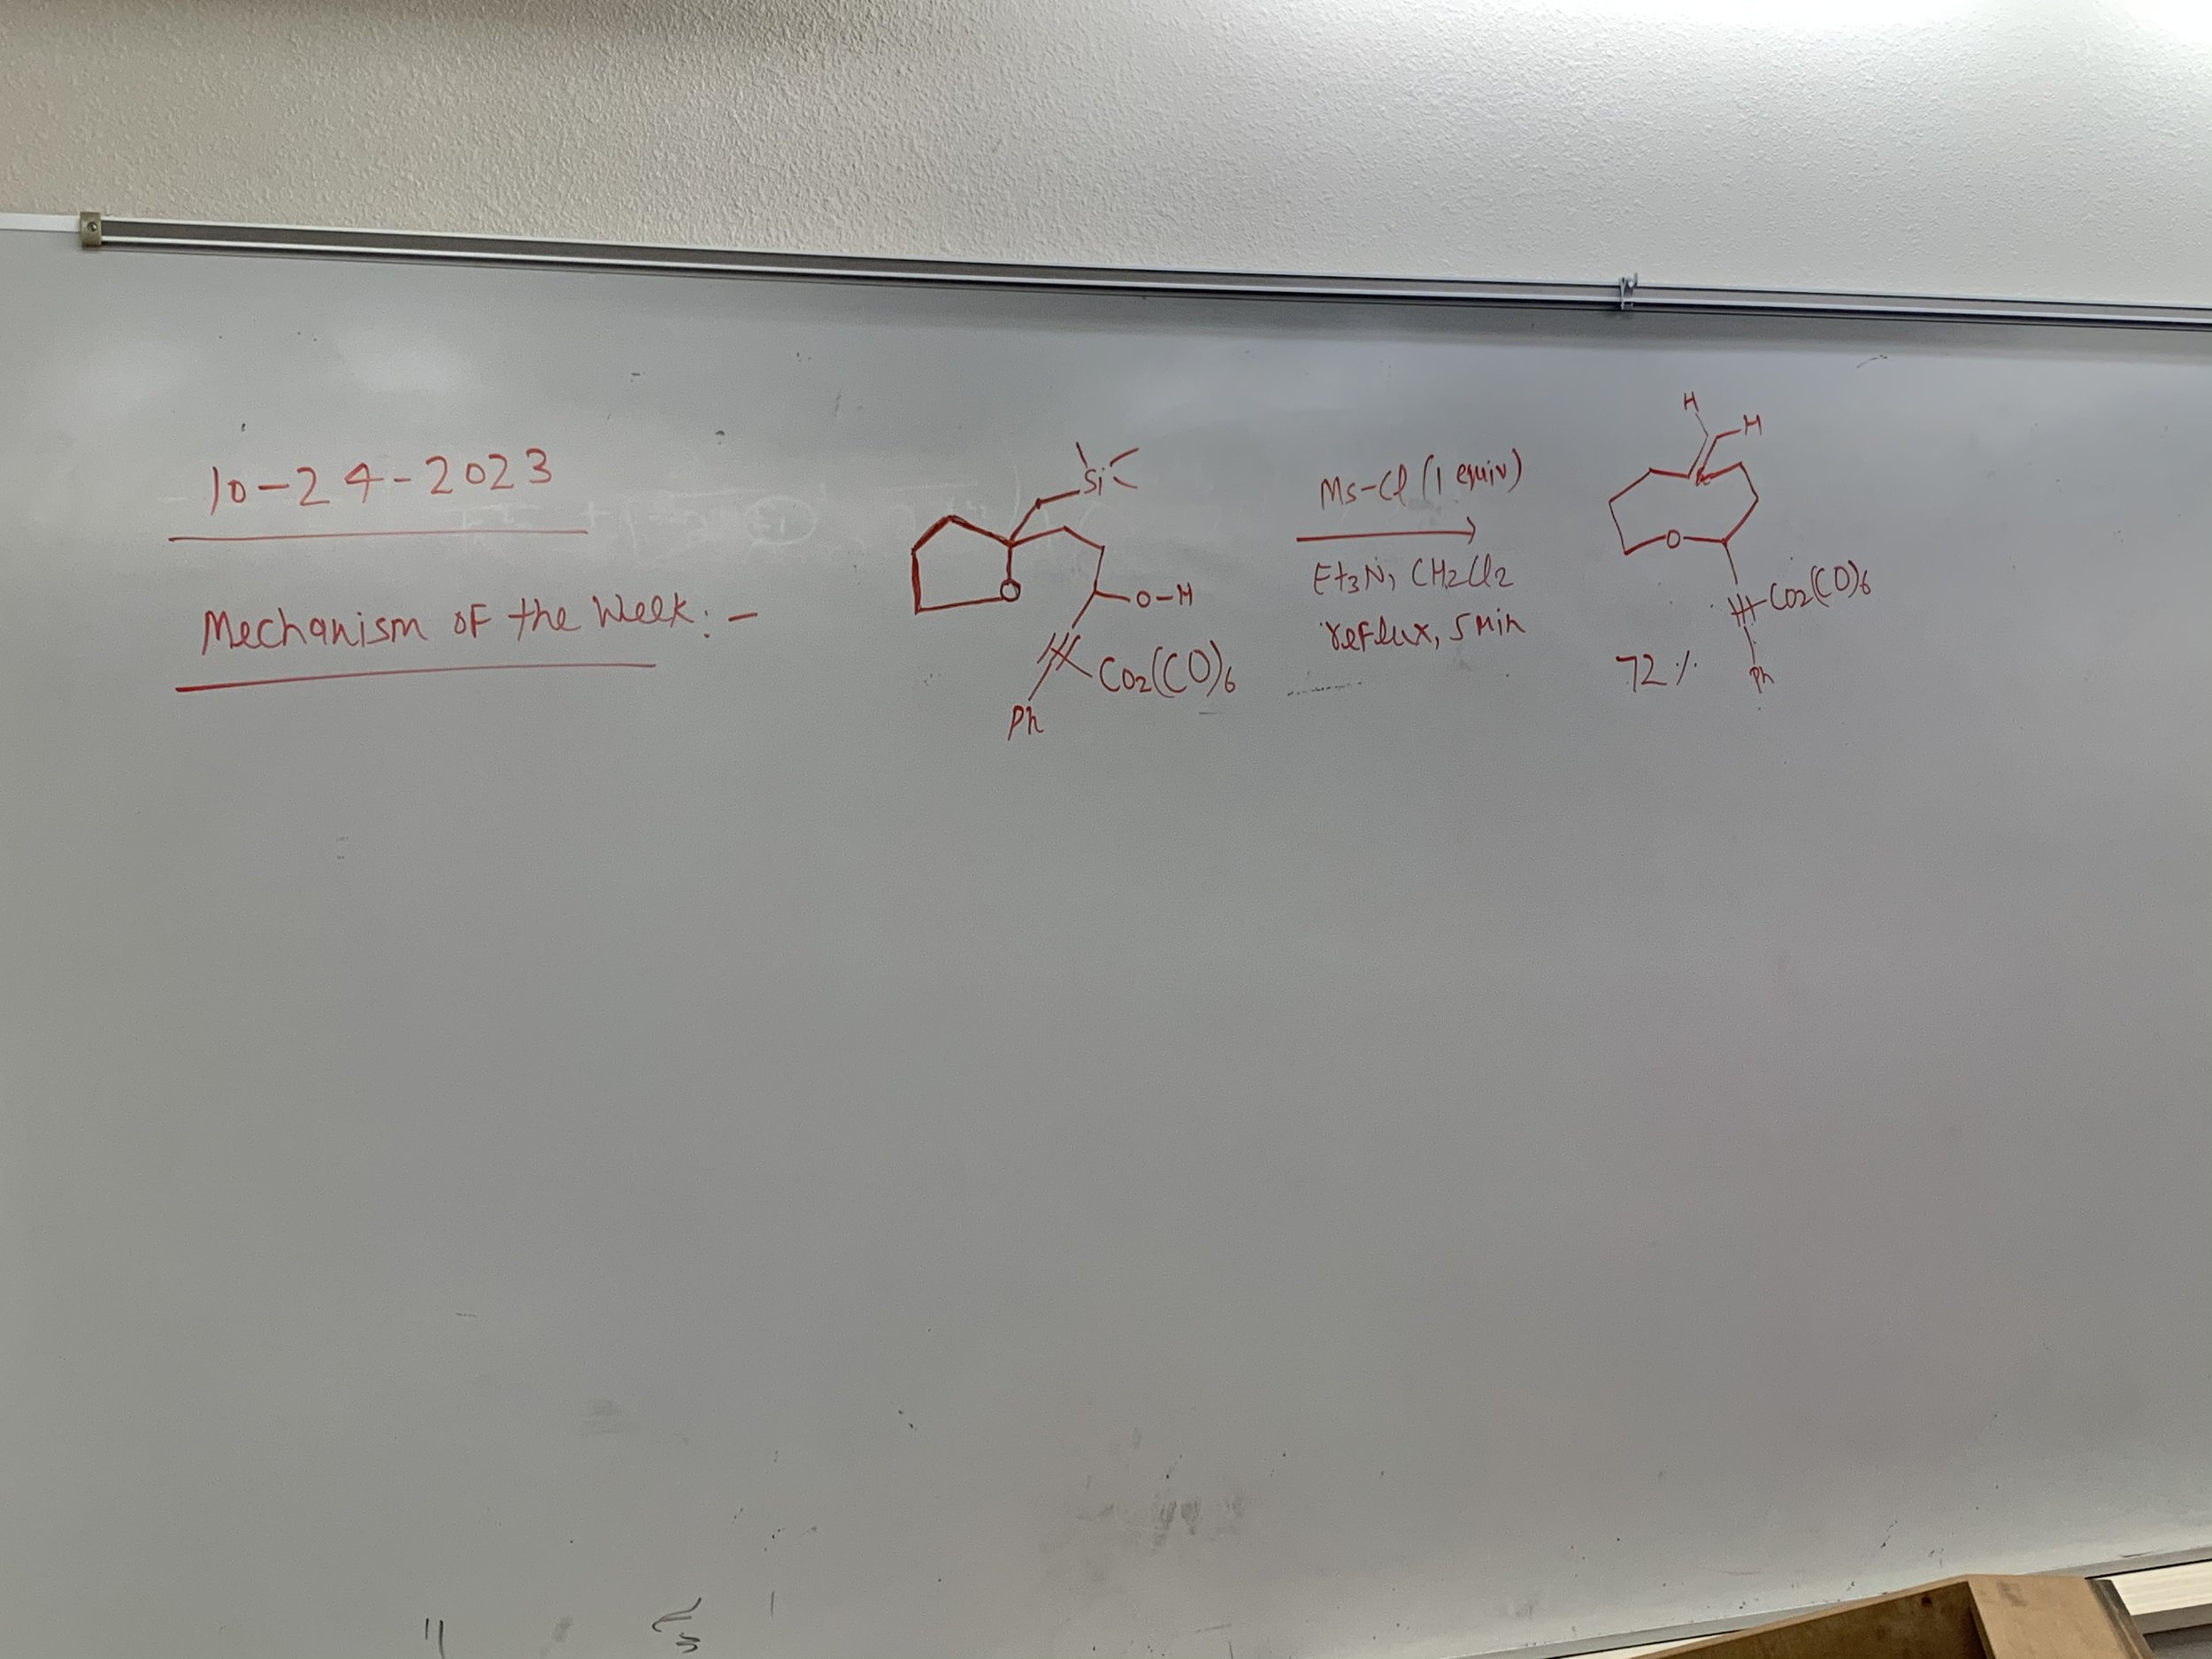 10-24-2023
Mechanism of the Week:-
Si
O
O-H
Co2(CO)6
Ph
Ms-Cl (1 equiv)
Et3N, CH2Cl2
reflux, 5 min
H
H
O
Co2(CO)6
Ph
72%